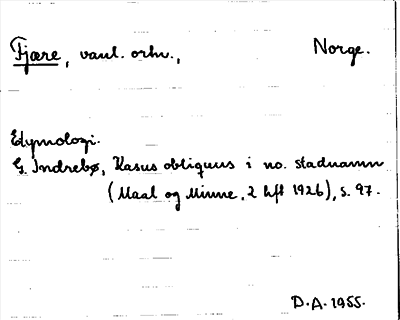 Fjære, vanl. orhv., Norge.
Etymologi.
G. Indrebø, Kasus obliquus i no. stadnamn
(Maal og Minne, 2 hft 1926), s. 97.
D.A. 1955.